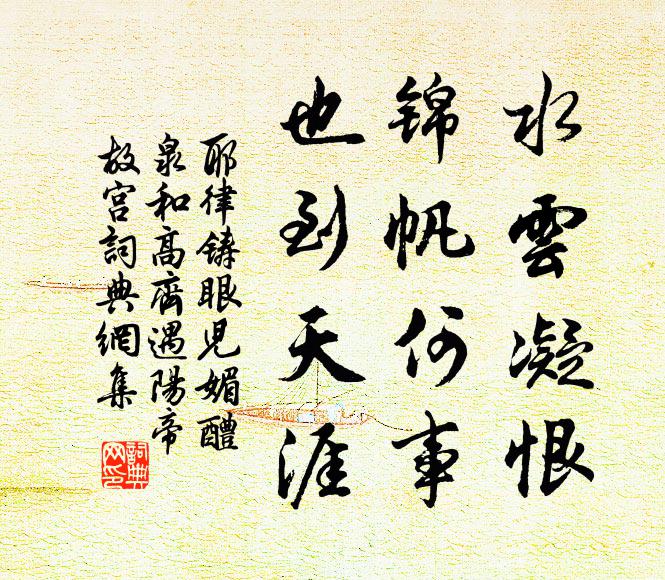 水雲凝恨
錦帆何事
也到天涯
耶律鑄眼兒媚醴
泉和高齊遇陽帝
故宮詞典網集
詞典
网印